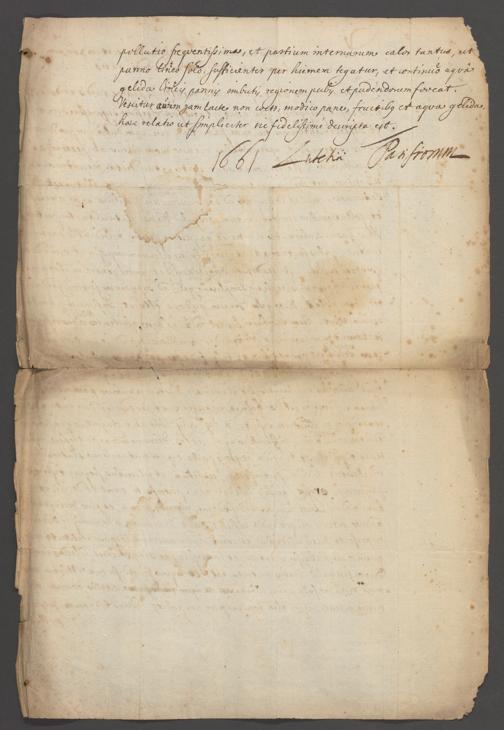 pollutio frequentissima, et partium internarum calor tantus, ut
panno lineo solo, sufficienter per hiemem tegatur, et continuò aquâ
gelidâ panny imbuti, regionem pubis et pudendorum foveat.
Vescitur autem jam lacte non cocto, modico pane, fructibq et aqua gelida,
haec relatio ut simpliciter sic fidelissime descripta est.
1661 Lutetiâ Parisiorum